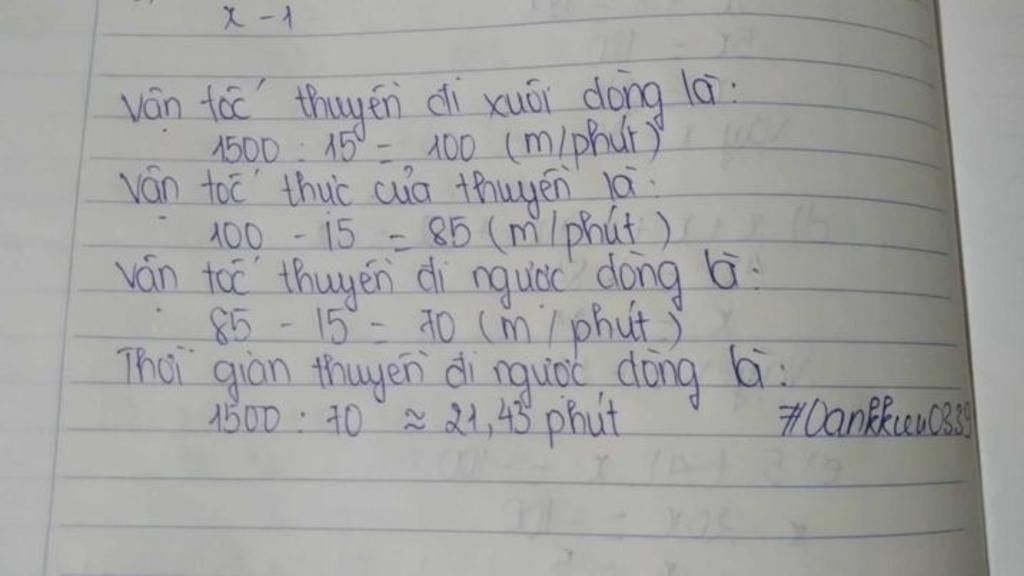 x - 1
Vận tốc thuyền đi xuôi dòng là:
1500 : 15 = 100 (m/phút)
Vận tốc thực của thuyền là:
100 - 15 = 85 (m/phút)
Vận tốc thuyền đi ngược dòng là:
85 - 15 = 70 (m/phút)
Thời gian thuyền đi ngược dòng là:
1500 : 70 ≈ 21,43 phút